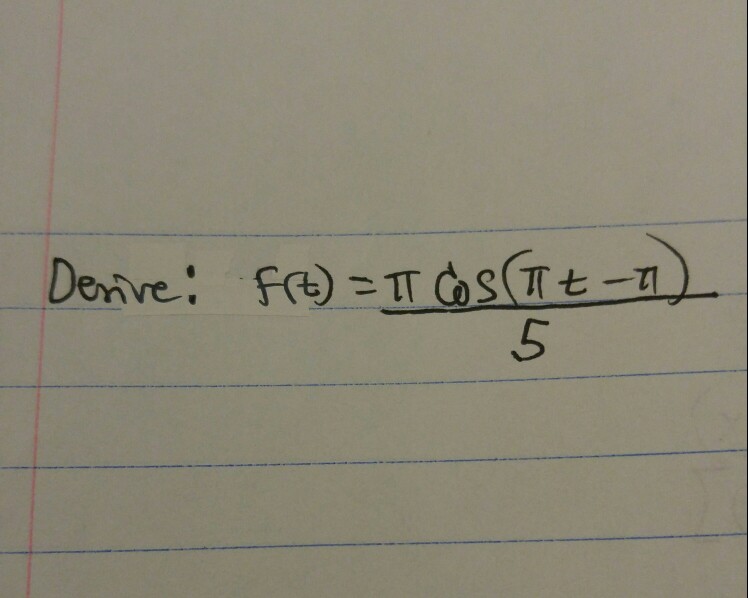 Derive: f(t) = π Cos(πt - π)
5